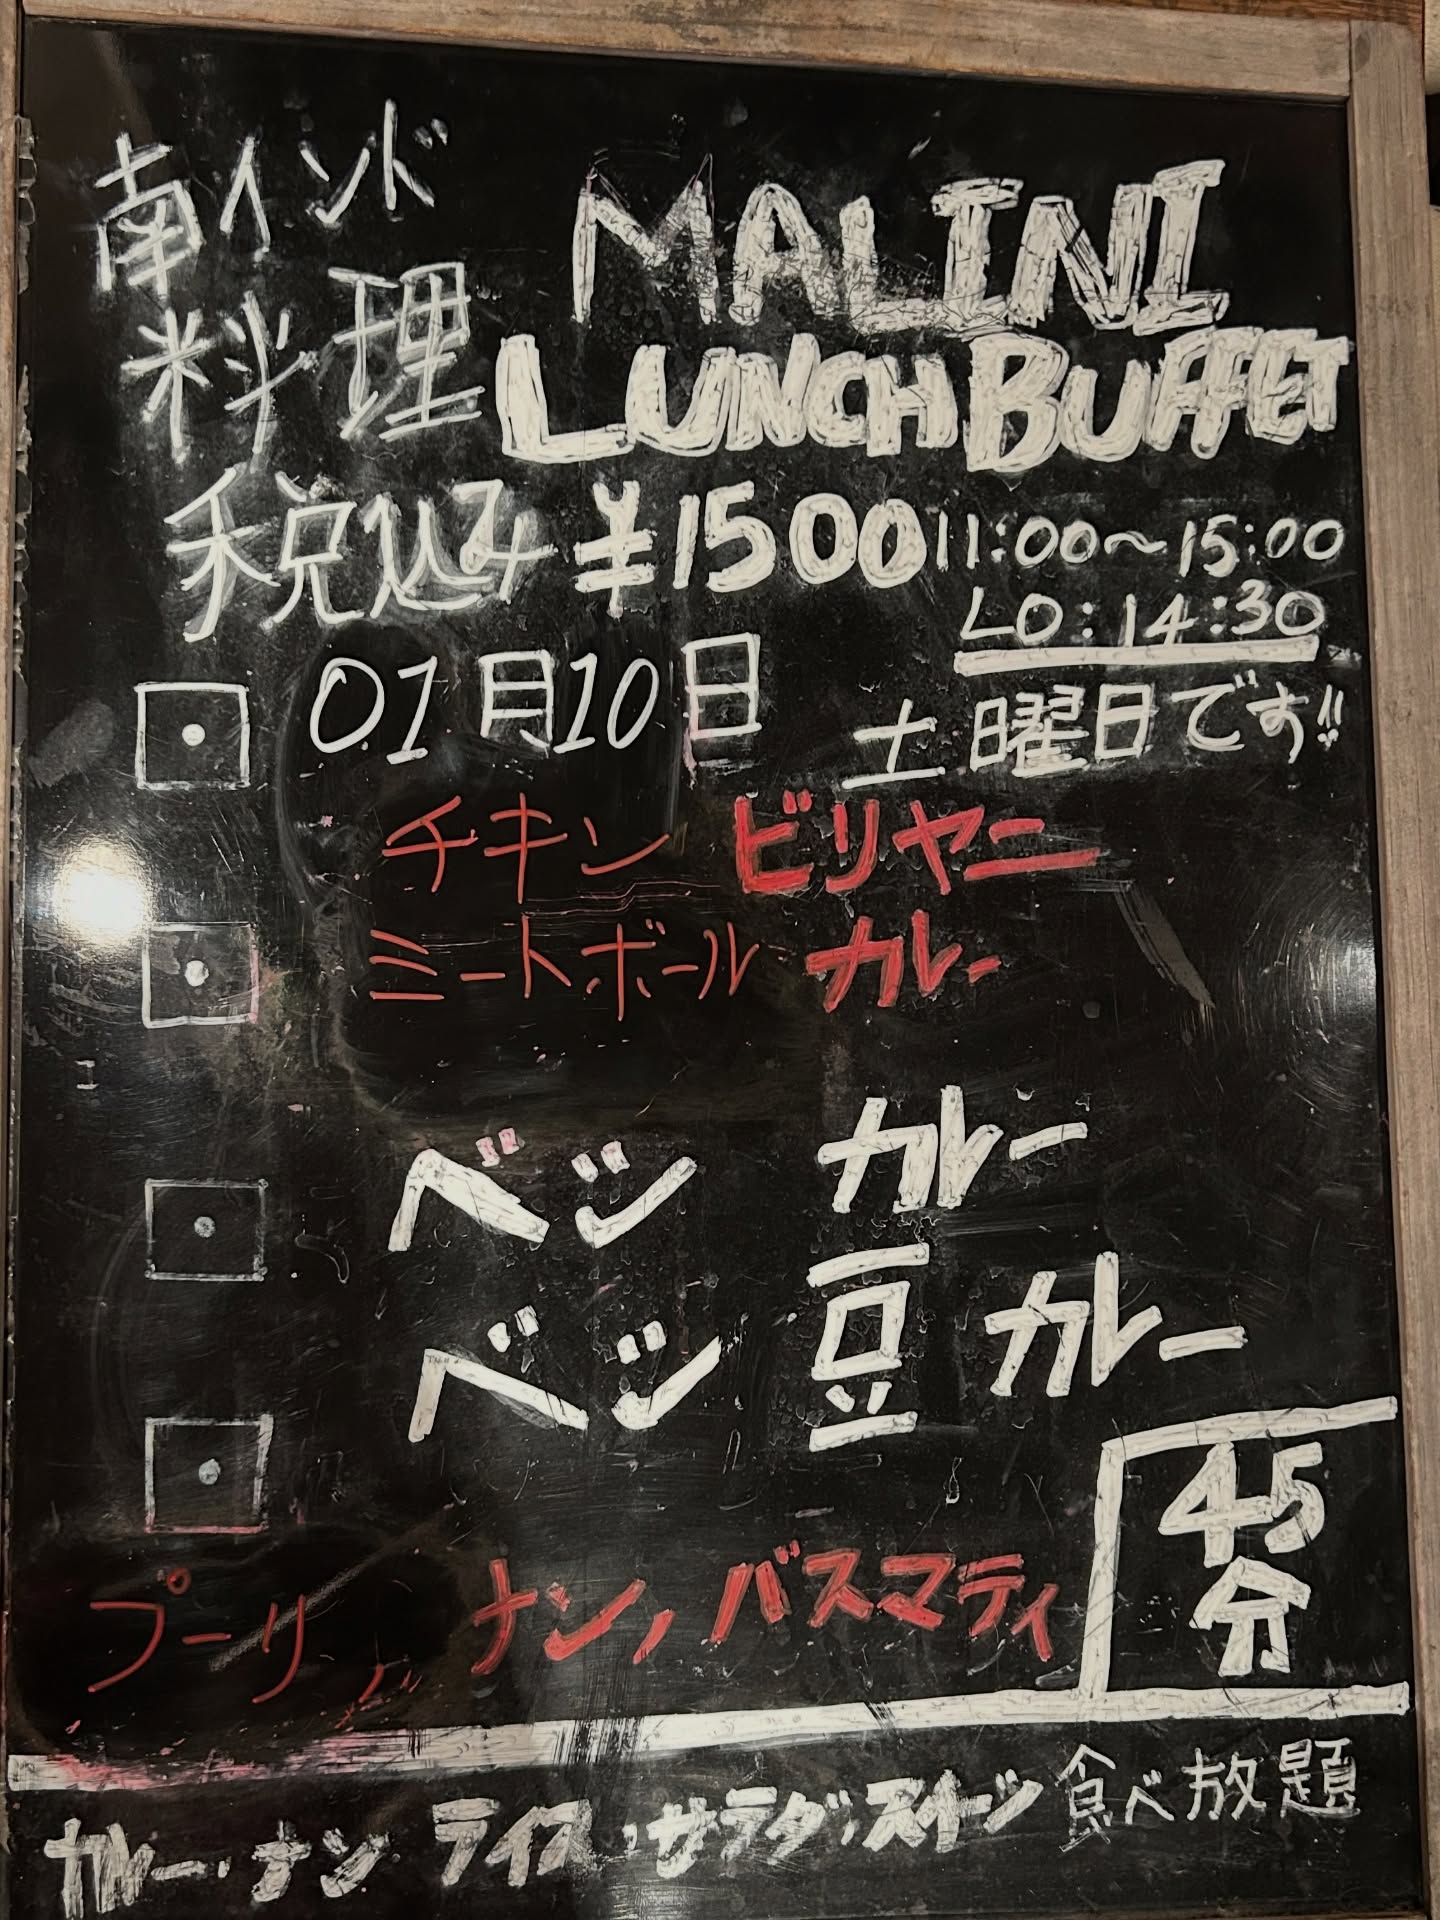 南インド
料理
MALINI
LUNCH BUFFET
税込み ¥1500 11:00〜15:00
LO:14:30
01月10日 土曜日です!!
チキン ビリヤニ
ミートボール カレー
ベジ カレー
ベジ 豆 カレー
45分
プーリ, ナン, バスマティ
カレー・ナン ライス・サラダ・スイーツ 食べ放題